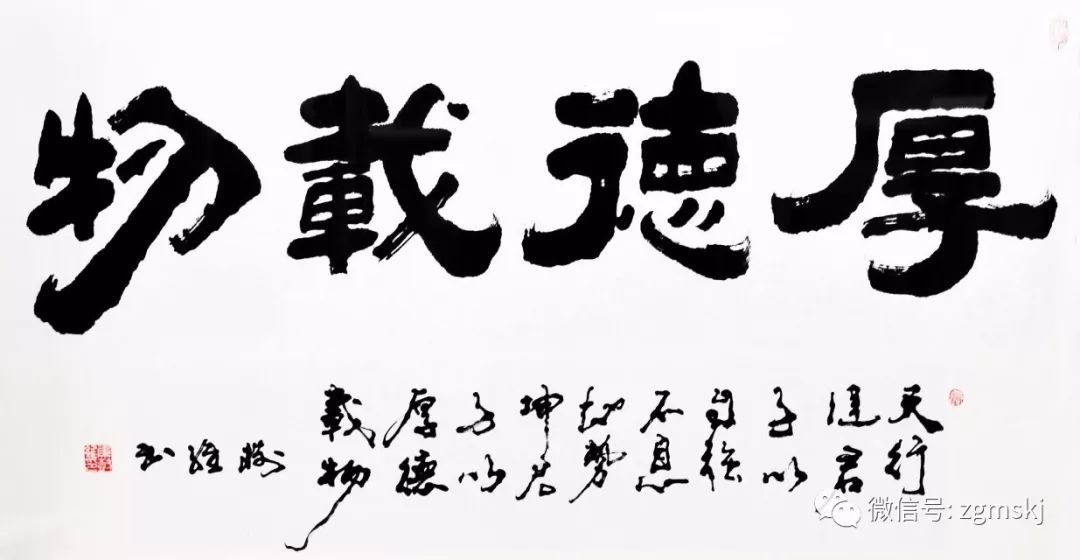 厚德載物
天行
健君
子以
自強
不息
地勢
坤君
子以
厚德
載物
維
书
微信号: zgmskj